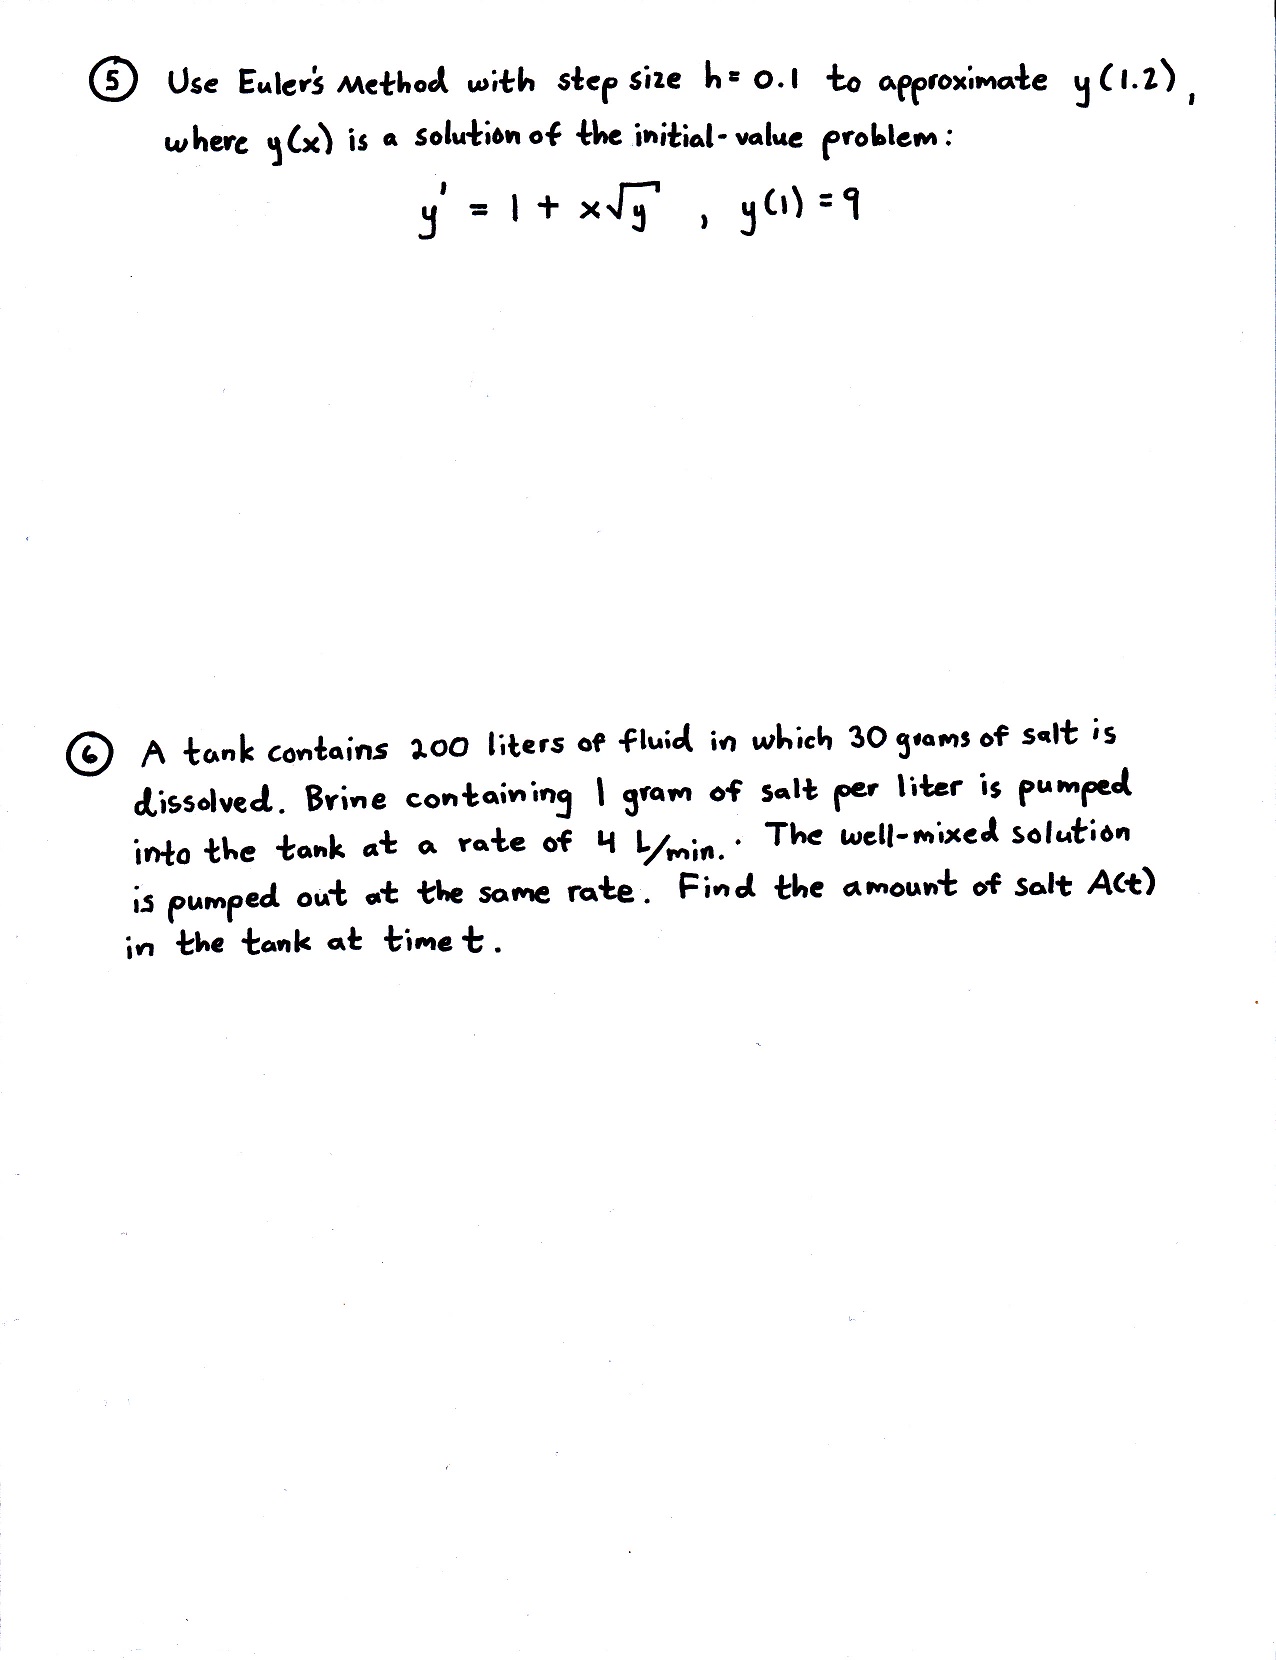 ⑤ Use Euler's Method with step size h = 0.1 to approximate y(1.2),
where y(x) is a solution of the initial-value problem:
y' = 1 + x√y , y(1) = 9
⑥ A tank contains 200 liters of fluid in which 30 grams of salt is
dissolved. Brine containing 1 gram of salt per liter is pumped
into the tank at a rate of 4 L/min. The well-mixed solution
is pumped out at the same rate. Find the amount of salt A(t)
in the tank at time t.